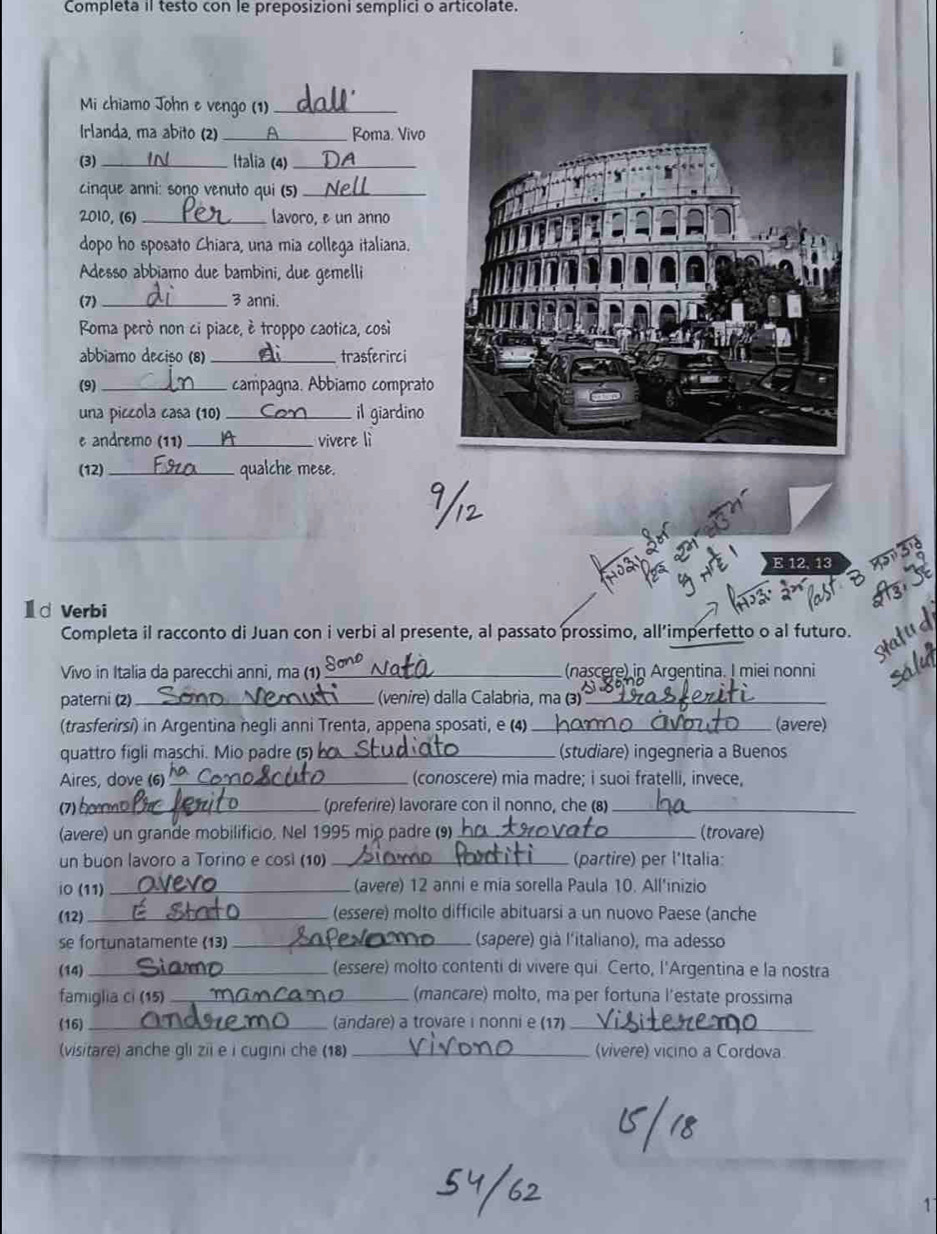 Completa il testo con le preposizioni semplici o articolate.
Mi chiamo John e vengo (1) dall'
Irlanda, ma abito (2) A Roma. Vivo
(3) IN Italia (4) DA
cinque anni: sono venuto qui (5) Nell
2010, (6) Per lavoro, e un anno
dopo ho sposato Chiara, una mia collega italiana.
Adesso abbiamo due bambini, due gemelli
(7) di 3 anni.
Roma però non ci piace, è troppo caotica, così
abbiamo deciso (8) di trasferirci
(9) in campagna. Abbiamo comprato
una piccola casa (10) Con il giardino
e andremo (11) A vivere lì
(12) Fra qualche mese.
9/12
E 12, 13
Past
1d Verbi
Completa il racconto di Juan con i verbi al presente, al passato prossimo, all'imperfetto o al futuro.
Vivo in Italia da parecchi anni, ma (1) Sono Nata (nascere) in Argentina. I miei nonni
paterni (2) Sono Venuti (venire) dalla Calabria, ma (3) si sono trasferiti
(trasferirsi) in Argentina negli anni Trenta, appena sposati, e (4) hanno avuto (avere)
quattro figli maschi. Mio padre (5) ha Studiato (studiare) ingegneria a Buenos
Aires, dove (6) ha Conoscuto (conoscere) mia madre; i suoi fratelli, invece,
(7) hanno Preferito (preferire) lavorare con il nonno, che (8) ha
(avere) un grande mobilificio. Nel 1995 mio padre (9) ha trovato (trovare)
un buon lavoro a Torino e così (10) Siamo Partiti (partire) per l'Italia:
io (11) avevo (avere) 12 anni e mia sorella Paula 10. All'inizio
(12) É Stato (essere) molto difficile abituarsi a un nuovo Paese (anche
se fortunatamente (13) Sapevamo (sapere) già l'italiano), ma adesso
(14) Siamo (essere) molto contenti di vivere qui. Certo, l'Argentina e la nostra
famiglia ci (15) mancano (mancare) molto, ma per fortuna l'estate prossima
(16) andremo (andare) a trovare i nonni e (17) Visiteremo
(visitare) anche gli zii e i cugini che (18) Vivono (vivere) vicino a Cordova.
15/18
54/62